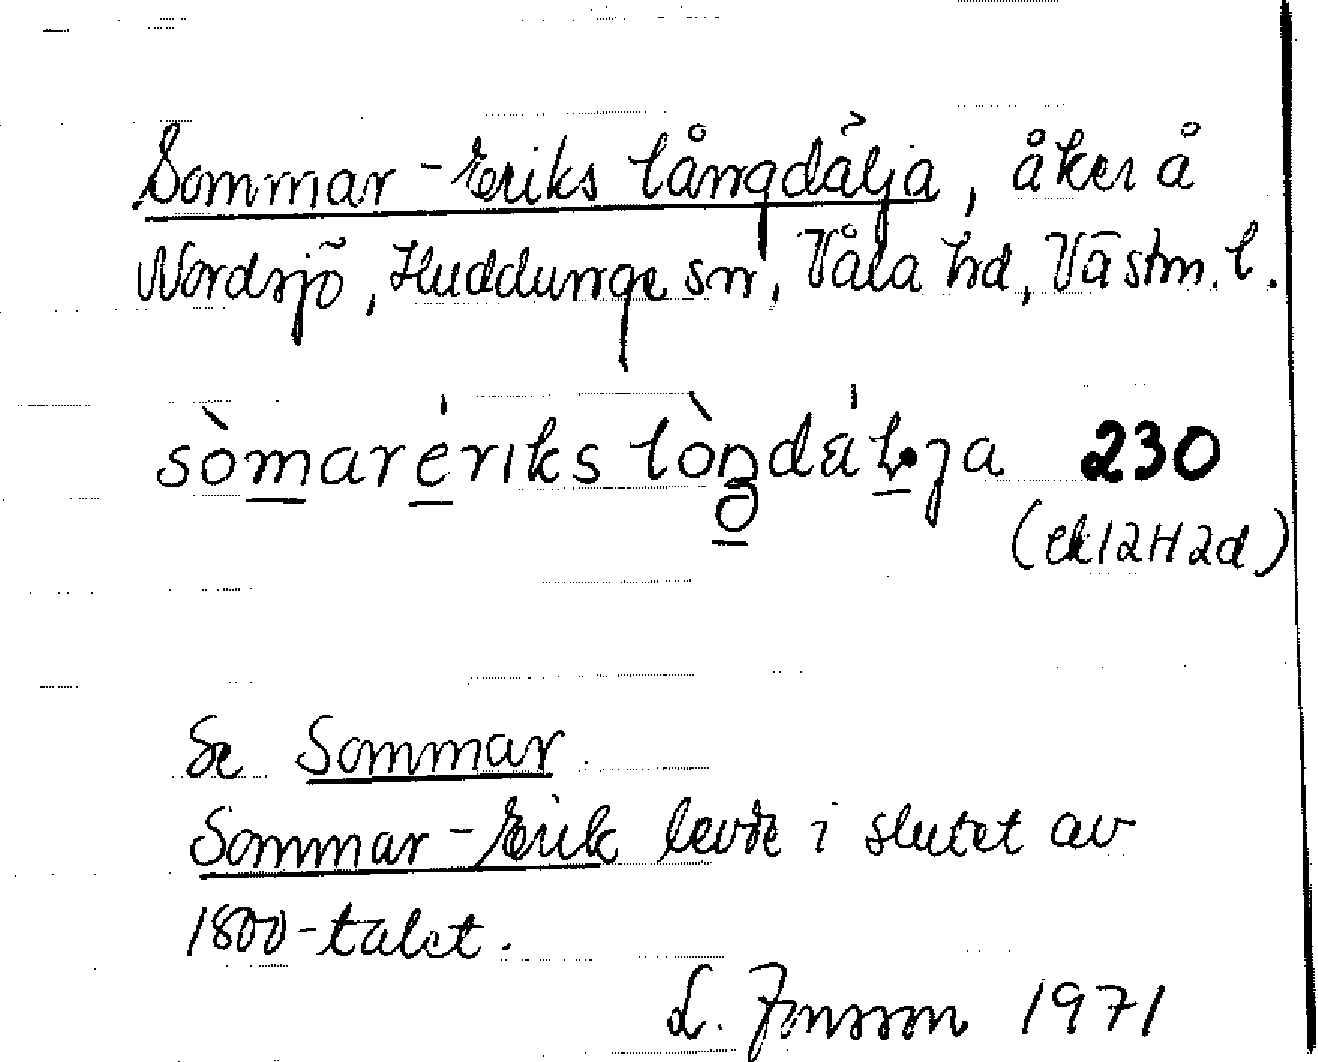 Sommar-Eriks långdälja, åker å
Nordsjö, Huddunge sn, Våla hd, Västm. l.
sòmarériks lòŋdáljа 230
(ek 12H2d)
Se Sommar.
Sommar-Erik levde i slutet av
1800-talet.
L. Jonsson 1971